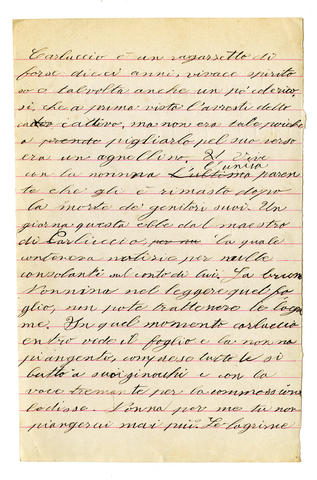 Carluccio è un ragazzetto di
forse dieci anni, vivace spirito
so e talvolta anche un po' colerico,
sì, che a prima vista l'avresti detto
cattivo, ma non era tale poiche
a prenderlo pigliarlo pel suo verso
era un agnellino. Vive
con la nonna L'ultima l'unica paren
te che gli è rimasto dopo
la morte de' genitori suoi. Un
giorno questa ebbe dal maestro
di Carluccio la quale
conteneva notizie per nulla
consolanti sul conto di lui. La buon
Nonnina nel leggere quel fo
glio, non pote trattenere le lagri
me. In quel momento carluccio
entro vide il foglio e la nonna
piangente, comprese tutto le si
butto a suoi ginochi e con la
voce tremante per la commossione
le disse. Nonna per me tu non
piangerai mai più. Le lagrime